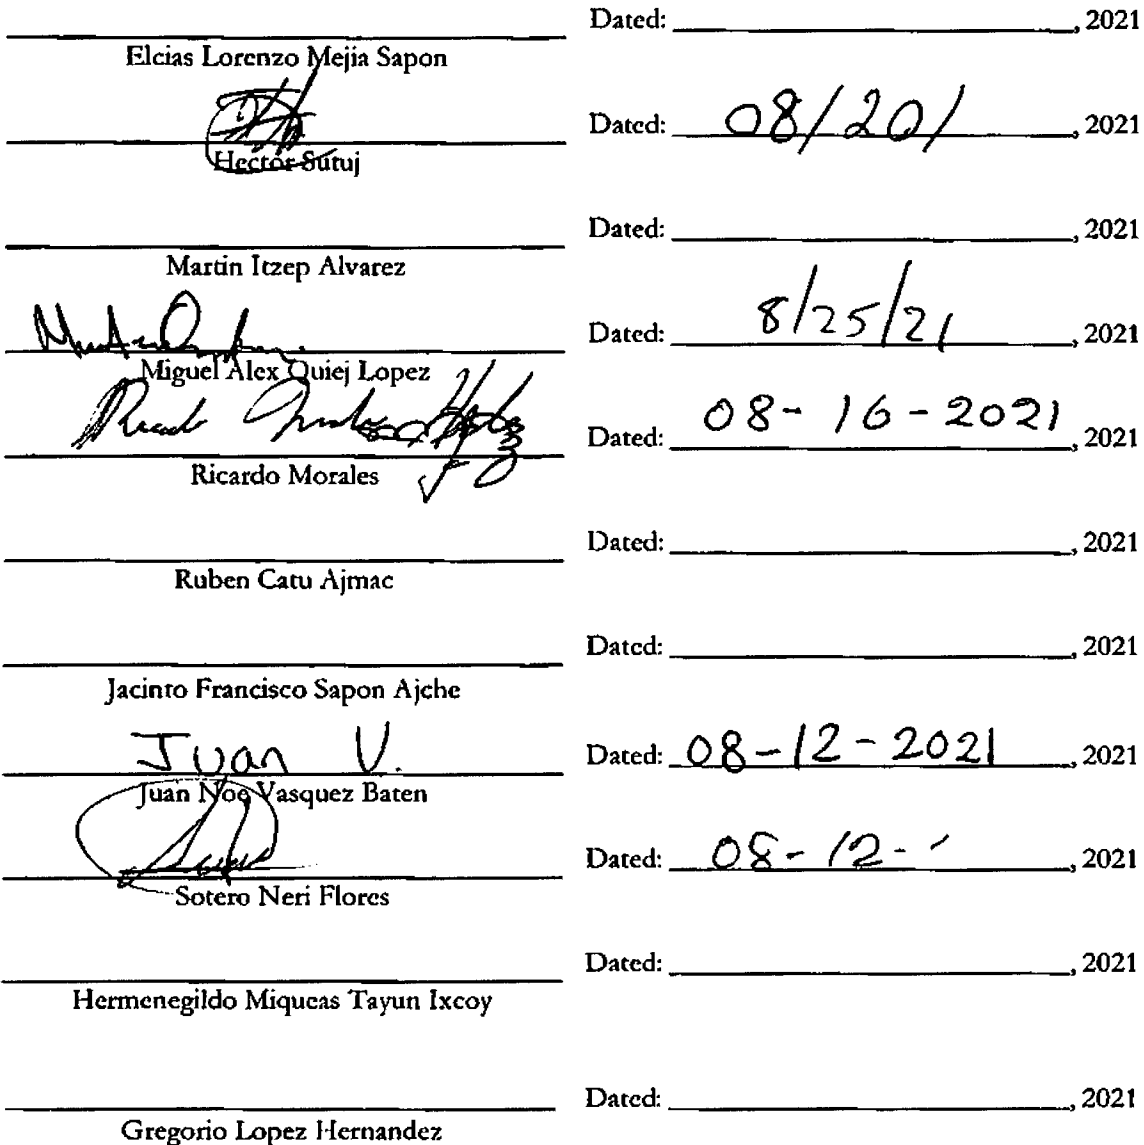 Dated: , 2021
Elcias Lorenzo Mejia Sapon
Dated: 08/20/ , 2021
Hector Sutuj
Dated: , 2021
Martin Itzep Alvarez
Dated: 8/25/21 , 2021
Miguel Alex Quiej Lopez
Ricardo Morales
Dated: 08-16-2021 , 2021
Ricardo Morales
Dated: , 2021
Ruben Catu Ajmac
Dated: , 2021
Jacinto Francisco Sapon Ajche
Juan V. Dated: 08-12-2021 , 2021
Juan Noe Vasquez Baten
Dated: 08-12- , 2021
Sotero Neri Flores
Dated: , 2021
Hermenegildo Miqueas Tayun Ixcoy
Dated: , 2021
Gregorio Lopez Hernandez